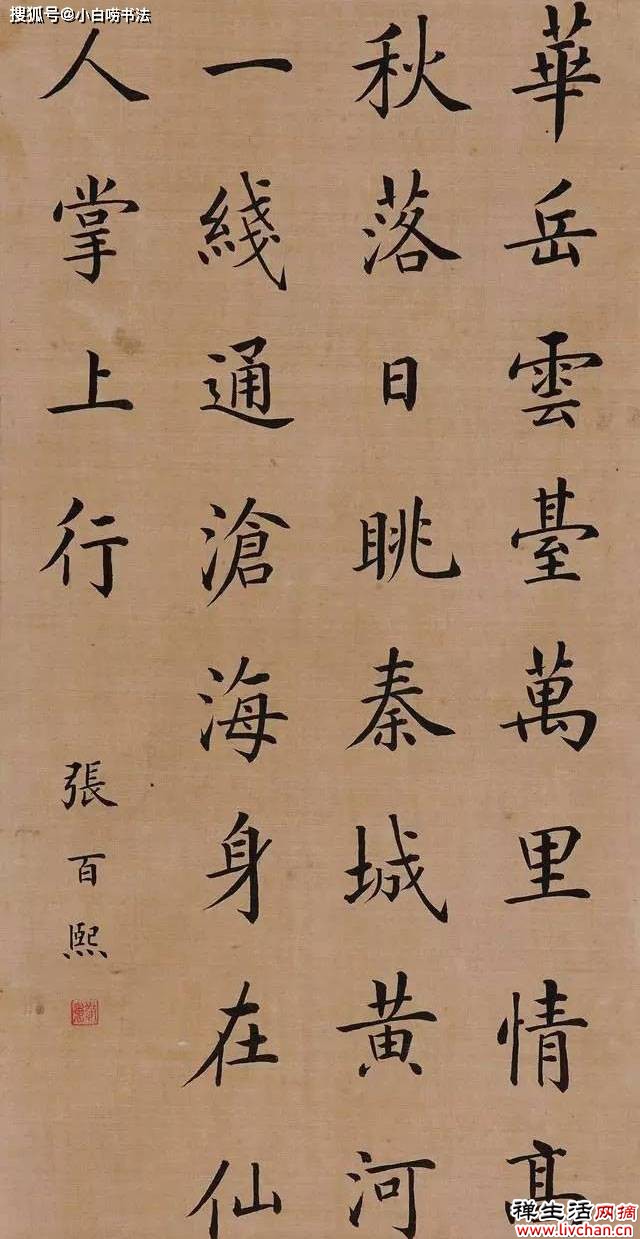 搜狐号@小白唠书法
華岳雲臺萬里情高
秋落日眺秦城黄河
一綫通滄海身在仙
人掌上行
張百熙
禅生活网摘
www.livchan.cn